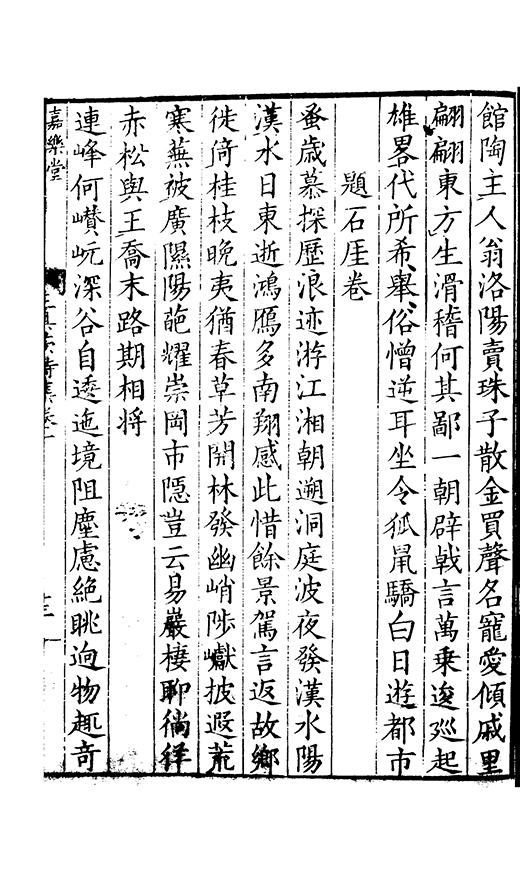 館陶主人翁洛陽賣珠子散金買聲名寵愛傾戚里
翩翩東方生滑稽何其鄙一朝辟戟言萬乗逡廵起
雄畧代所希舉俗憎逆耳坐令狐鼠驕白日遊都市
題石厓卷
蚤歳慕探歷浪迹游江湘朝遡洞庭波夜發漢水陽
漢水日東逝鴻鴈多南翔感此惜餘景駕言返故鄉
徙倚桂枝晚夷猶春草芳開林發幽峭陟巘披遐荒
寒蕪被廣隰陽葩耀崇岡市隱豈云易巖棲聊徜徉
赤松與王喬末路期相将
連峰何巑岏深谷自逶迤境阻塵慮絕眺逈物趣奇
嘉樂堂
詩集卷一
十三